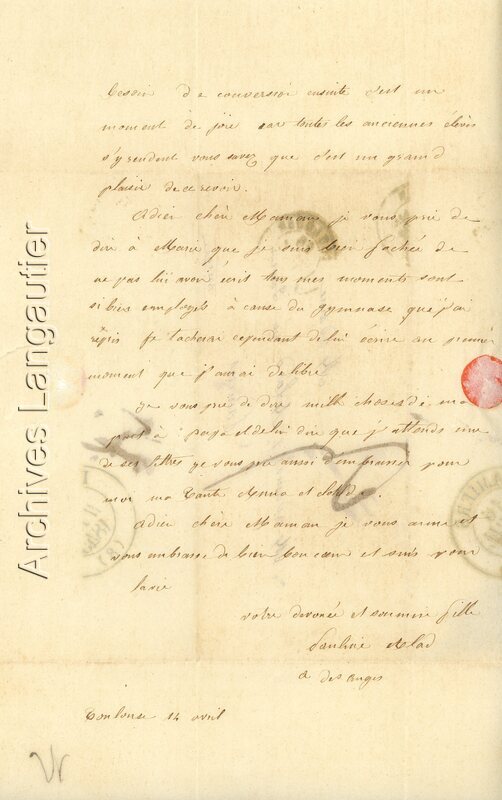 besoin de conversion ensuite c'est un
moment de joie car toutes les anciennes élèves
s'y rendent vous savez que c'est un grand
plaisir de ce revoir.
Adieu chère Maman je vous prie de
dire à Marie que je suis bien fachée de
ne pas lui avoir écris tous mes moments sont
si bien employés à cause du gymnase que j'ai
repris je tacherai cependant de lui écrire au premier
moment que j'aurai de libre
Je vous prie de dire mille choses de ma
part à papa et de lui dire que j'attends une
de ses lettres je vous prie aussi d'embrasser pour
moi ma Tante Anna et
Adieu chère Maman je vous aime et
vous embrasse de bien bon coeur et suis pour
la vie
votre devouée et soumise fille
Pauline
des anges
Toulouse 14 avril
Archives Langautier